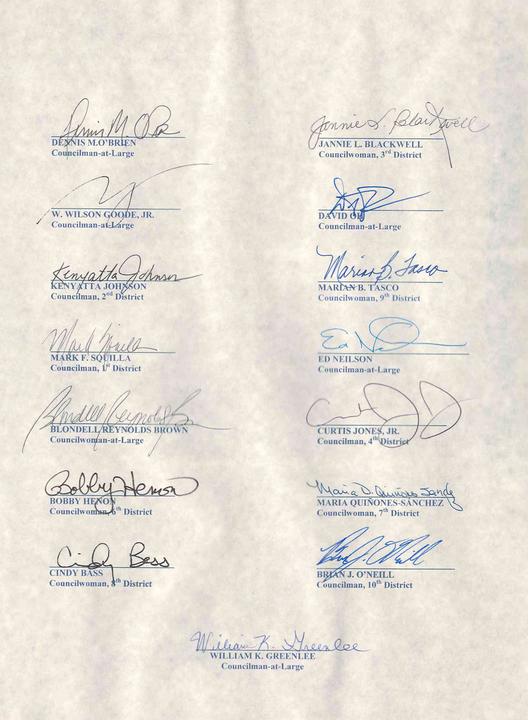 Dennis M. O'Brien
DENNIS M.O'BRIEN
Councilman-at-Large
Jannie L. Blackwell
JANNIE L. BLACKWELL
Councilwoman, 3rd District
W. WILSON GOODE, JR.
Councilman-at-Large
DAVID OH
Councilman-at-Large
Kenyatta Johnson
KENYATTA JOHNSON
Councilman, 2nd District
Marian B. Tasco
MARIAN B. TASCO
Councilwoman, 9th District
Mark Squilla
MARK F. SQUILLA
Councilman, 1st District
Ed N
ED NEILSON
Councilman-at-Large
Blondell Reynolds B
BLONDELL REYNOLDS BROWN
Councilwoman-at-Large
CURTIS JONES, JR.
Councilman, 4th District
Bobby Henon
BOBBY HENON
Councilman, 6th District
Maria D. Quiñones Sanchez
MARIA QUIÑONES-SÁNCHEZ
Councilwoman, 7th District
Cindy Bass
CINDY BASS
Councilwoman, 8th District
Brian J. O'Neill
BRIAN J. O'NEILL
Councilman, 10th District
William K. Greenlee
WILLIAM K. GREENLEE
Councilman-at-Large